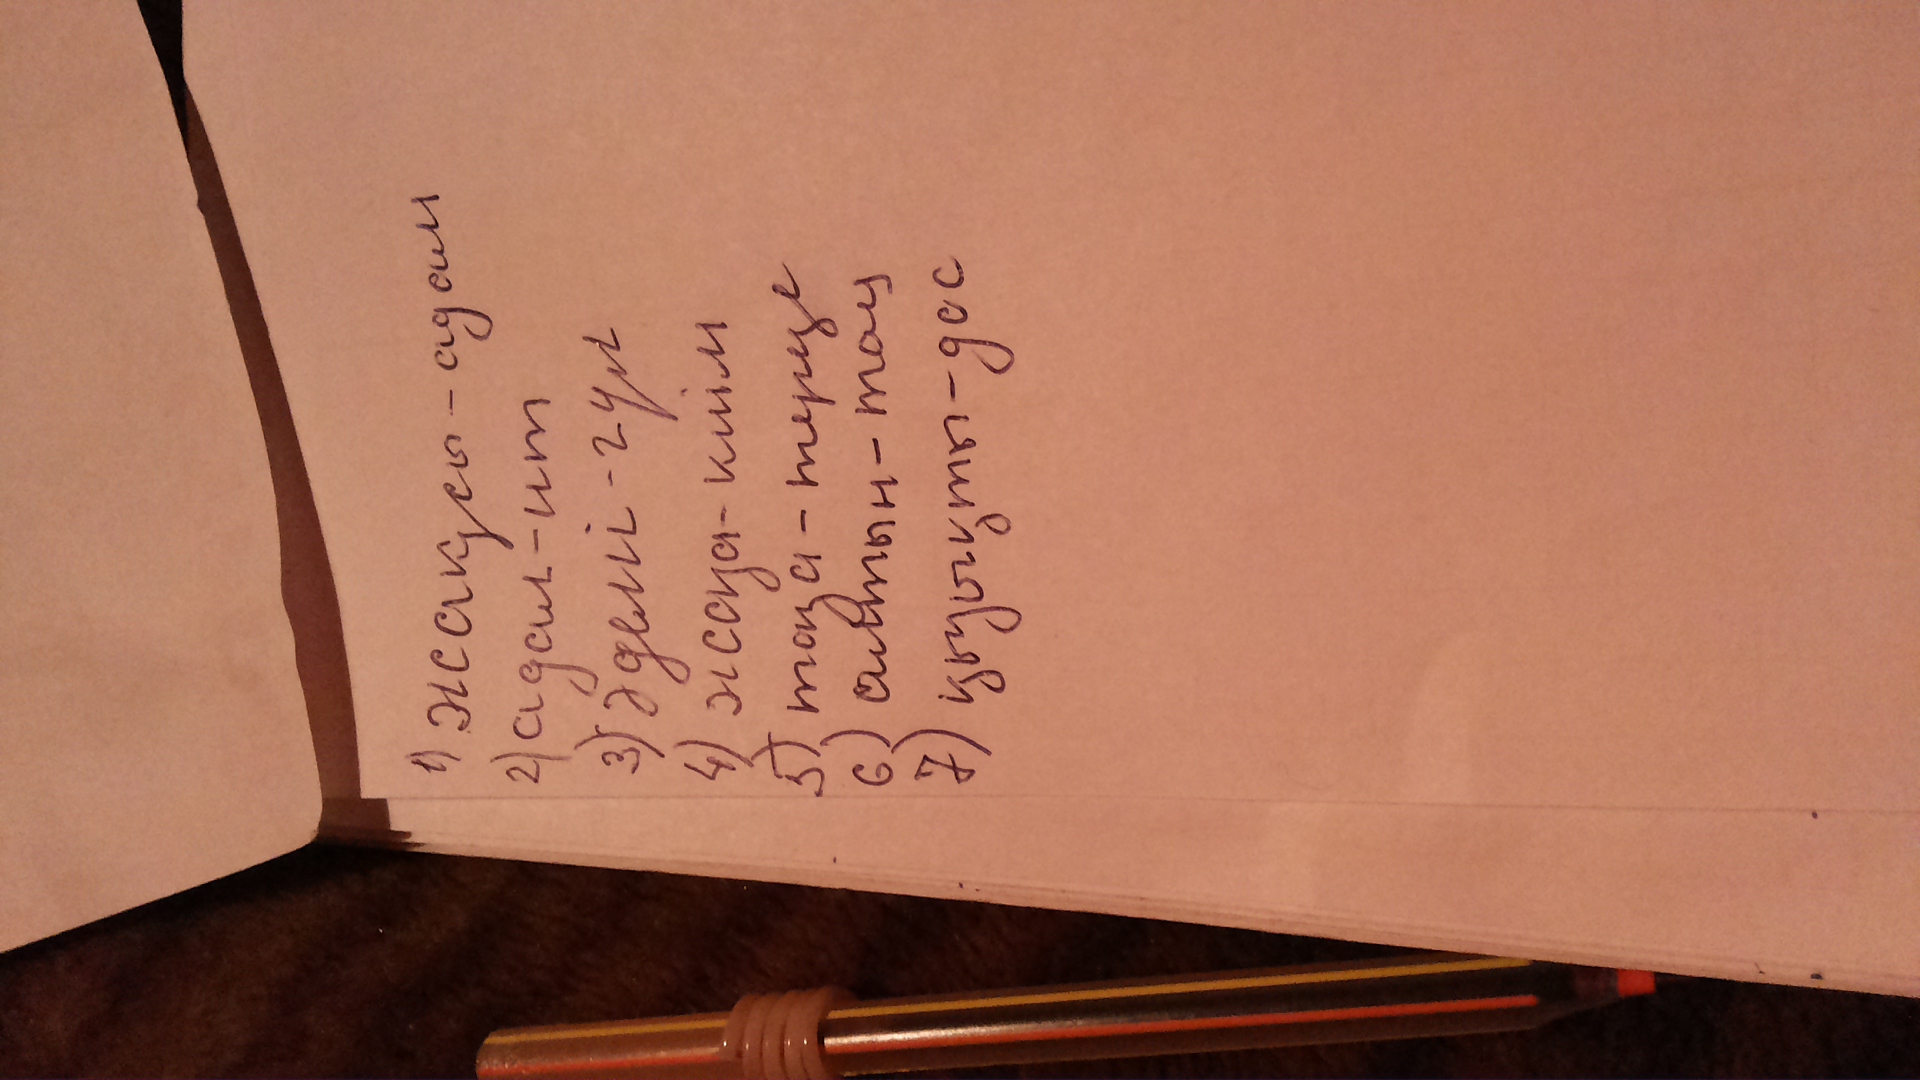 1) жақсы - адам
2) адал - ит
3) әдемі - гүл
4) жаңа - киім
5) таза - терезе
6) алтын - таң
7) қызықты - дос